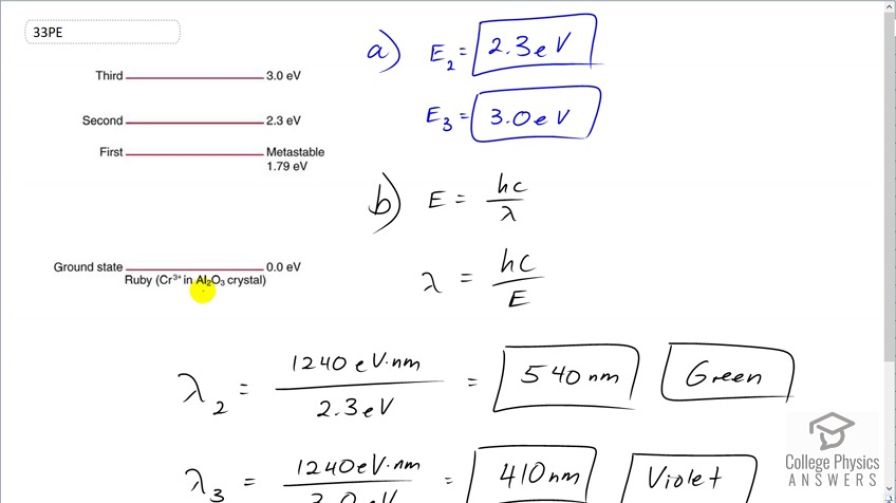 33PE
Third 3.0 eV
Second 2.3 eV
First Metastable
1.79 eV
Ground state 0.0 eV
Ruby (Cr³⁺ in Al₂O₃ crystal)
a) E₂ = 2.3 eV
E₃ = 3.0 eV
b) E = hc/λ
λ = hc/E
λ₂ = 1240 eV·nm / 2.3 eV = 540 nm Green
λ₃ = 1240 eV·nm / 3.0 eV = 410 nm Violet
College Physics
ANSWERS